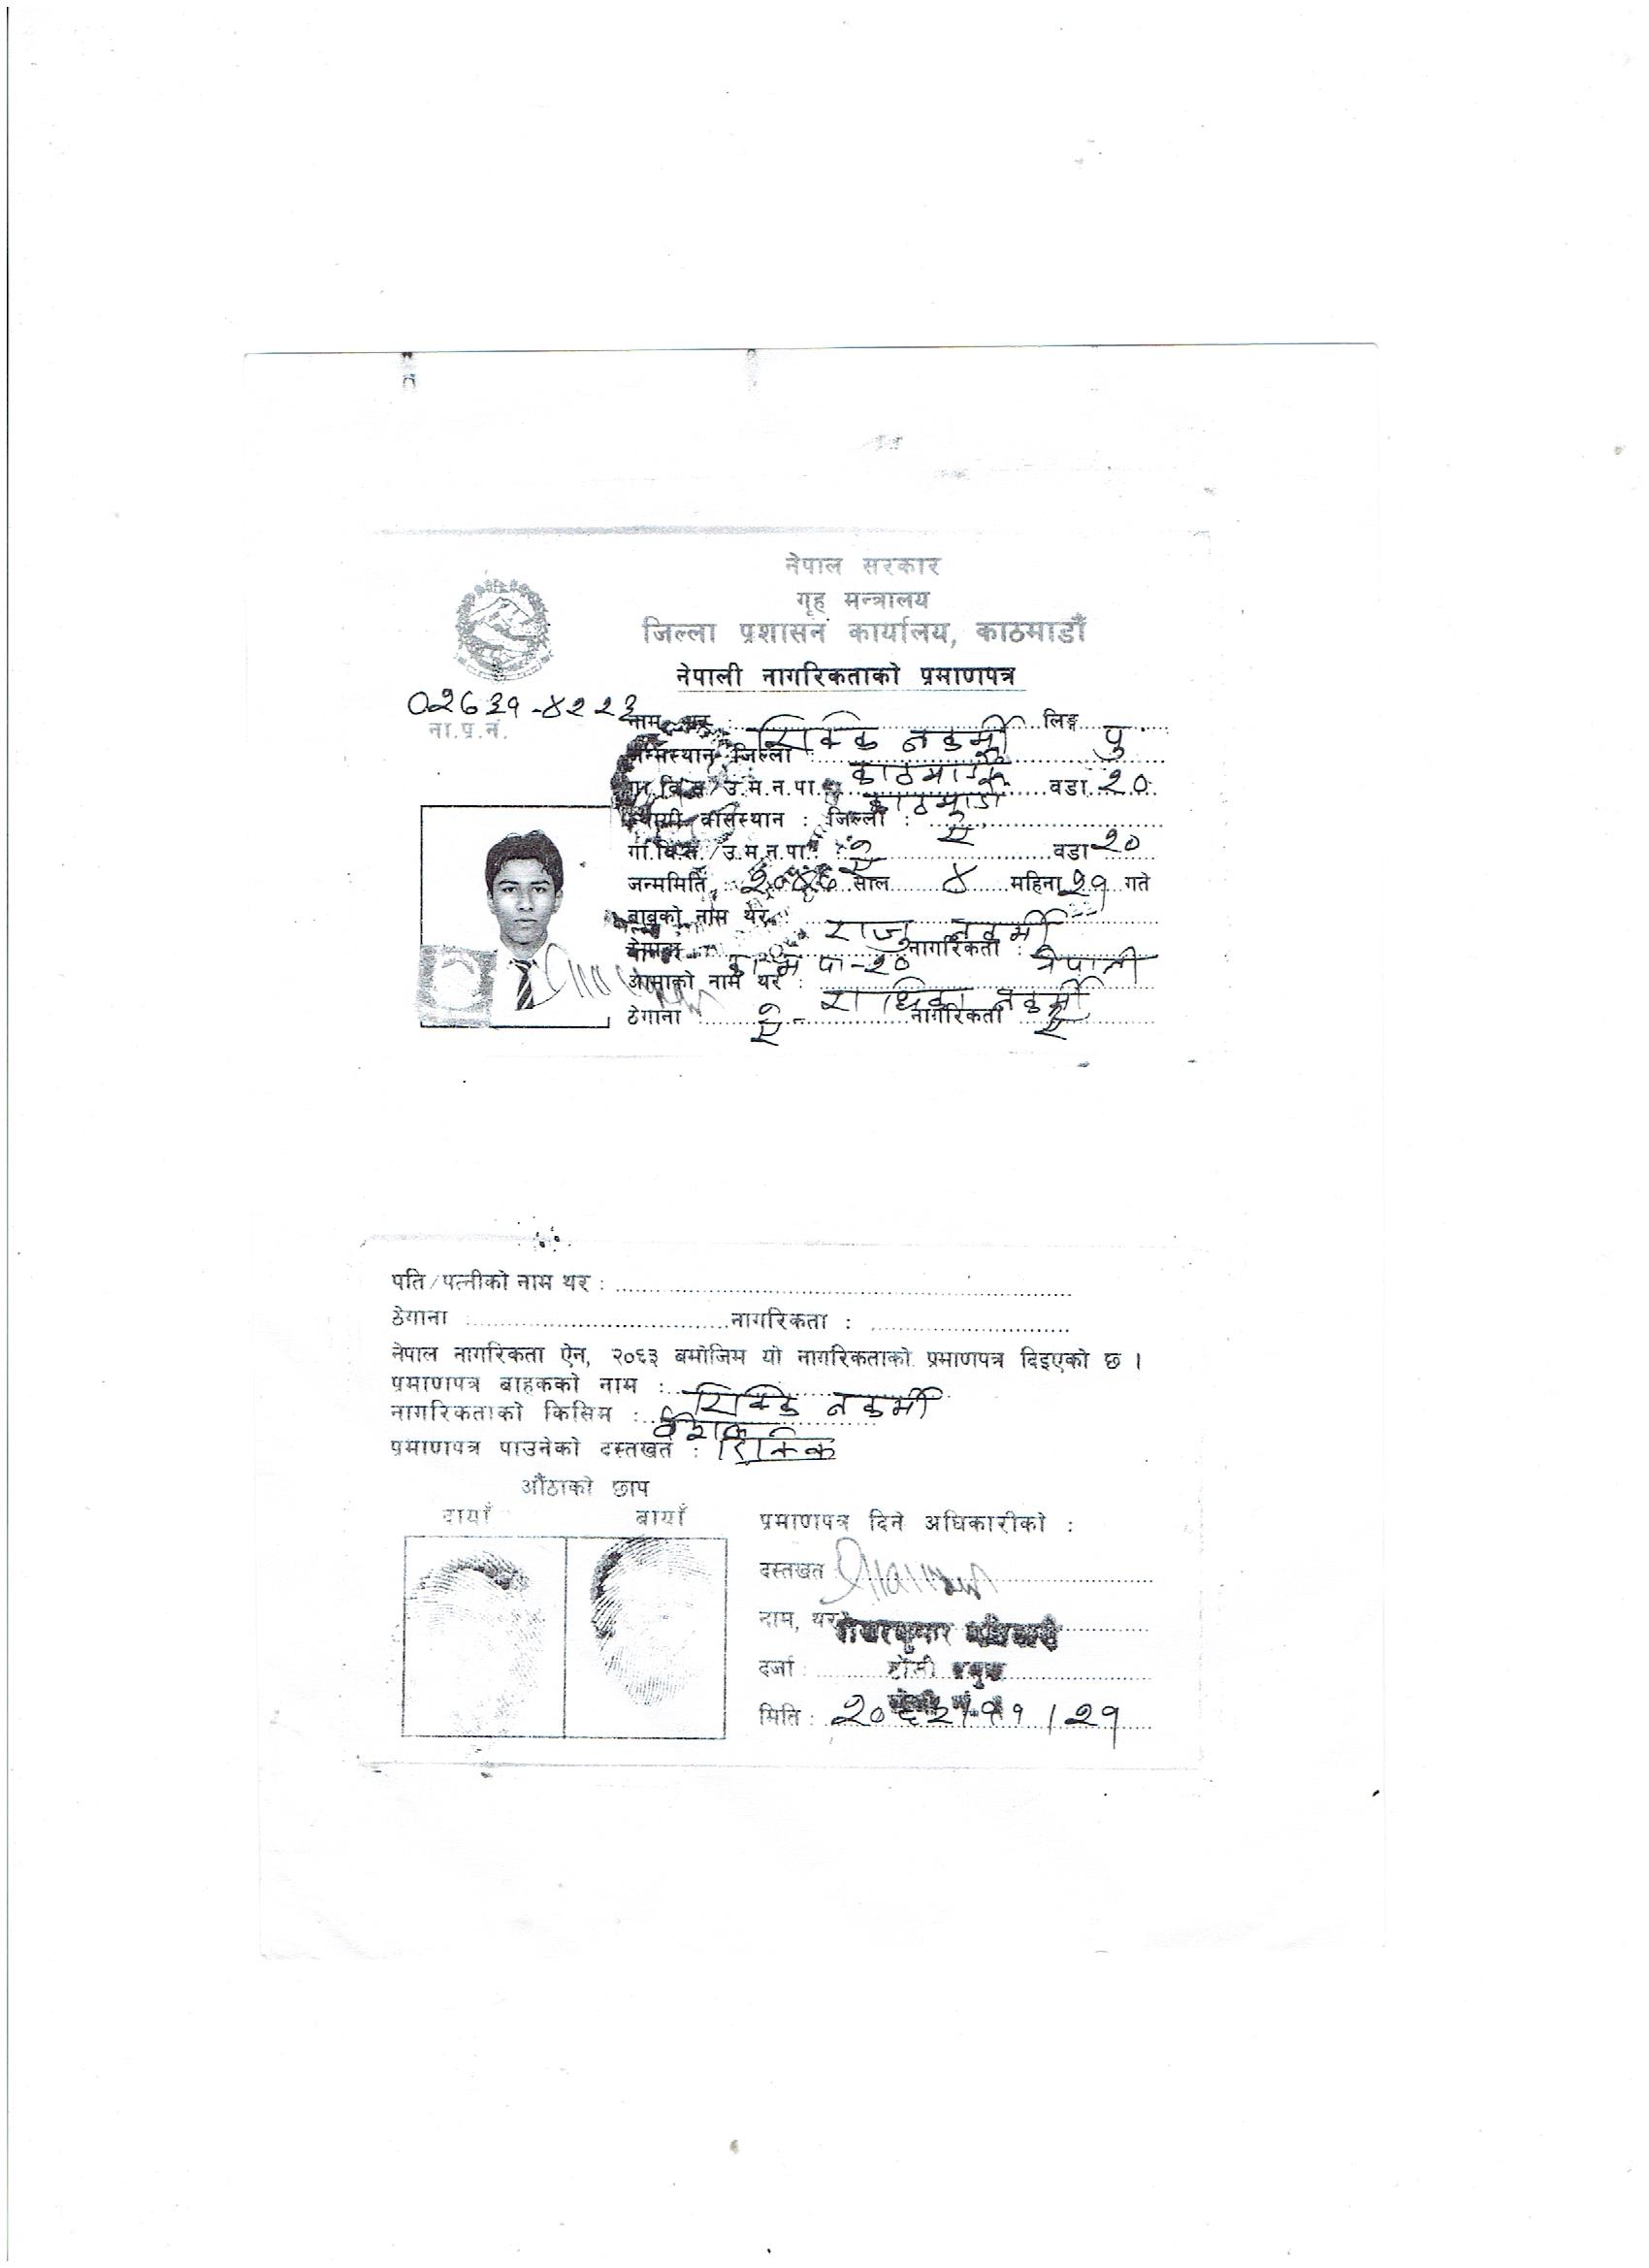 नेपाल सरकार
गृह मन्त्रालय
जिल्ला प्रशासन कार्यालय, काठमाडौं
नेपाली नागरिकताको प्रमाणपत्र
ना.प्र.नं.
नाम थर : नकर्मी लिङ्ग पु
जन्मस्थान जिल्ला : काठमाडौं
गा.वि.स./उ.म.न.पा. काठमाडौं वडा २०
स्थायी वासस्थान : जिल्ला : ऐ
गा.वि.स./उ.म.न.पा. ऐ वडा २०
जन्ममिति : साल ४ महिना २१ गते
बाबुको नाम थर : राजु नकर्मी
ठेगाना का म पा-२० नागरिकता : नेपाली
आमाको नाम थर : राधिका नकर्मी
ठेगाना ऐ नागरिकता ऐ
पति/पत्नीको नाम थर :
ठेगाना : नागरिकता :
नेपाल नागरिकता ऐन, २०६३ बमोजिम यो नागरिकताको प्रमाणपत्र दिइएको छ ।
प्रमाणपत्र बाहकको नाम : नकर्मी
नागरिकताको किसिम : वंशज
प्रमाणपत्र पाउनेको दस्तखत :
औंठाको छाप
दायाँ बायाँ
प्रमाणपत्र दिने अधिकारीको :
दस्तखत
नाम, थर
दर्जा :
मिति :